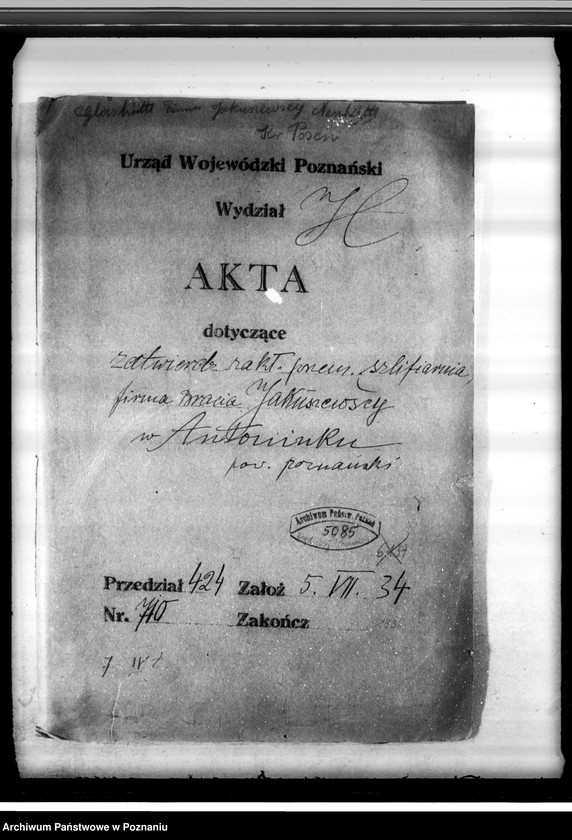 Firma Jakuszewscy
Kr Posen
Urząd Wojewódzki Poznański
Wydział
AKTA
dotyczące
zatwierdz zakł. przem. (szlifiarnia,
firma Bracia Jakuszewscy
w Antoninku
pow. poznański
Archiwum Państw. Poznań
5085
Przedział 424 Założ 5. VII. 34
Nr. 710 Zakończ
Archiwum Państwowe w Poznaniu